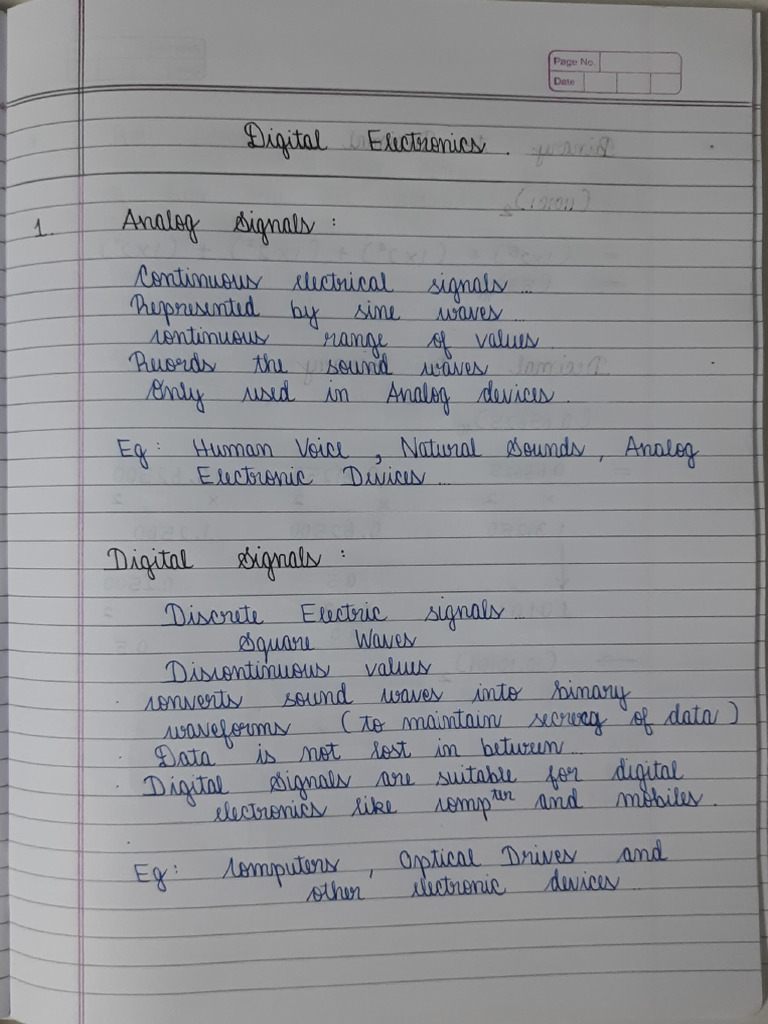 Page No.
Date
Digital Electronics.
1. Analog Signals :
Continuous electrical signals ...
Represented by sine waves ...
continuous range of values.
Records the sound waves
Only used in Analog devices.
Eg: Human Voice, Natural Sounds, Analog
Electronic Divices ...
Digital Signals :
Discrete Electric signals ...
Square Waves
Discontinuous values
converts sound waves into binary
waveforms (to maintain secrecy of data)
Data is not lost in between ...
Digital Signals are suitable for digital
electronics like compter and mobiles.
Eg: computers, Optical Drives and
other electronic devices ...